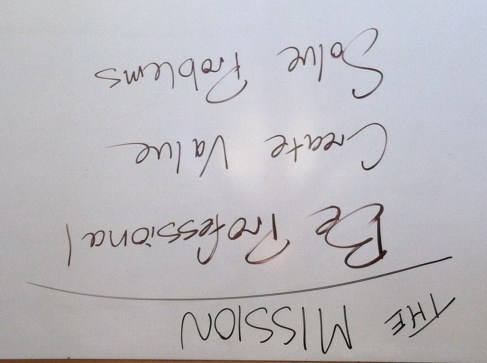 THE MISSION
Be Professional
Create Value
Solve Problems